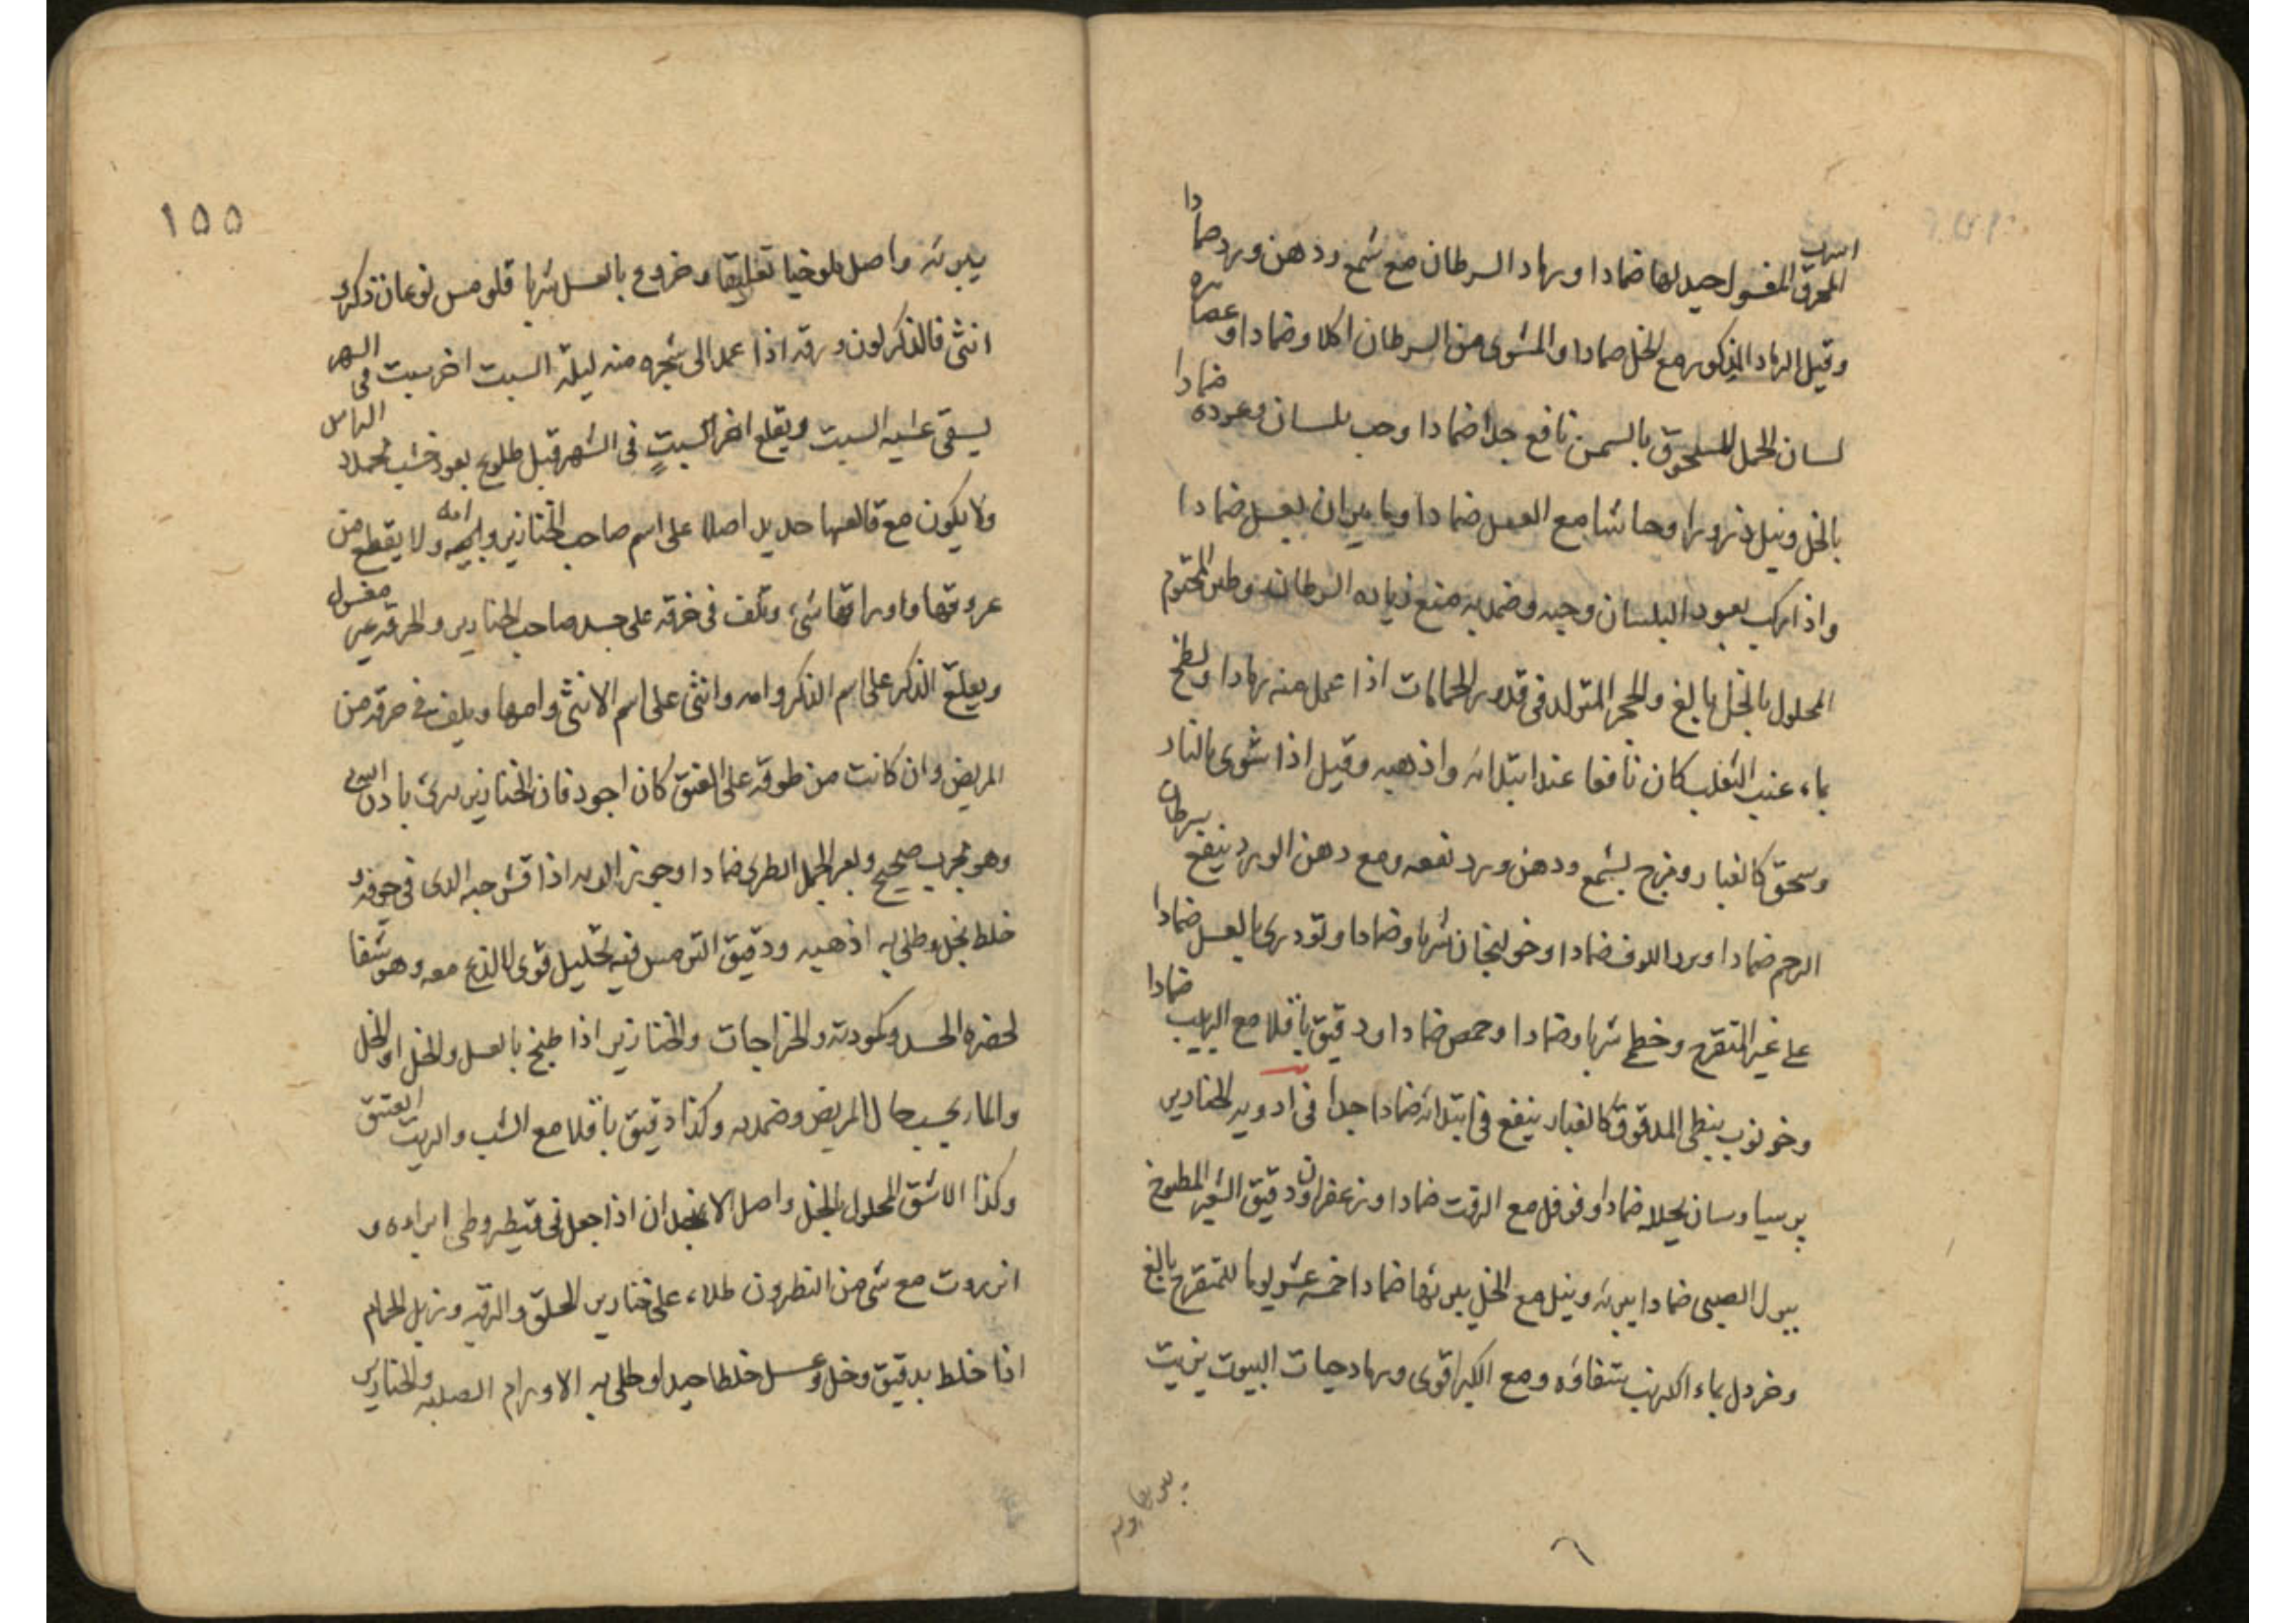 المحرق المغسول جيد لها ضمادا ورماد السرطان مع شمع ودهن ورد ضمادا
وقيل الرماد المذكور مع الخل ضمادا والمشوى من السرطان اكلا وضمادا وعصاره
لسان الحمل المسحوق بالسمن نافع جدا ضمادا وحب بلسان وعوده ضمادا
بالخل ونيل ذرورا وحاشا مع العسل ضمادا وماميران بعسل ضمادا
واذا ركب بعود البلسان وحبه وضمد به منع زياده السرطان وطين المختوم
المحلول بالخل بالغ والحجر المتولد فى قدور الحمامات اذا عمل منه رمادا ولطخ
بماء عنب الثعلب كان نافعا عند ابتدائه واذهبه وقيل اذا شوى بالنار
وسحق كالغبار ومزج بشمع ودهن ورد نفعه ومع دهن الورد ينفع سرطان
الرحم ضمادا وبرد اللوف ضمادا وخولنجان شربا وضمادا وتودرى بالعسل ضمادا
على غير المتقرح وخطمى شربا وضمادا وحمص ضمادا ودقيق باقلا مع الزبيب ضمادا
وخرنوب نبطى المدقوق كالغبار ينفع فى ابتدائه ضمادا جدا فى ادويه الخنازير
بخلا ضمادا وفوفل مع الزفت ضمادا وزعفران ودقيق الشعير المطبوخ
ببول الصبى ضمادا يبرئه ونيل مع الخل يبرئها ضمادا خمسه عشر يوما للمتقرح بالغ
وخردل بماء الكرنب شفاؤه ومع الكبر اقوى ورماد حيات البيوت بزيت
يبرئه واصل ملوخيا تعليقا وخروع بالعسل شربا قلومس نوعان ذكر و
انثى فالذكر لون ورقه اذا عمد الى شجره منه ليله السبت اخر سبت فى الشهر
يسقى عشيه السبت ويقلع اخر السبت فى الشهر قبل طلوع بعود خشب محدد الراس
ولا يكون مع قالعها حديد اصلا على اسم صاحب الخنازير وابيه وامه ولا يقطع من
عروقها واوراقها شىء وتلف فى خرقه على جسد صاحب الخنازير والخرقه غير مغسول
ويعلق الذكر على اسم الذكر وامه وانثى على اسم الانثى وامها ويلف فى خرقه من
المريض وان كانت من طوقه على العنق كان اجود فان الخنازير تبرئ باذن الله
وهو مجرب صحيح وبعر الجمل الطرى ضمادا وجوز السرو اذا قشر حبه الذى فى جوفه و
خلط بخل وطلى به اذهبه ودقيق الترمس فيه تحليل قوى لا لذع معه وهو شفا
لخضره الجسد وكمودته والخراجات والخنازير اذا طبخ بالعسل والخل او الخل
والماء بحسب حال المريض وضمد به وكذا دقيق باقلا مع الشب والزيت العتيق
وكذا الاشق المحلول بالخل واصل الانجدان اذا جعل فى قيطر وطى
انزروت مع شى من النطرون طلاء على خنازير الحلق والرقبه وزبل الحمام
اذا خلط بدقيق وخل وعسل خلطا جيدا وطلى به الاورام الصلبه والخنازير
١٥٥